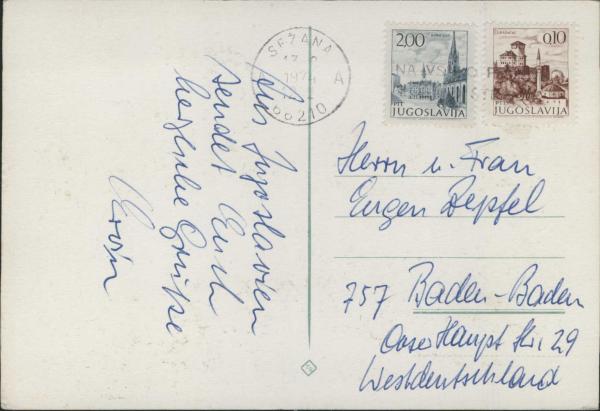 Aus Jugoslavien
sendet Euch
herzliche Grüße
Erwin
SEŽANA
66210
A
2,00
PTT
JUGOSLAVIJA
0,10
PTT
JUGOSLAVIJA
Herrn u. Frau
Eugen Zepfel
757 Baden-Baden
Ooser Haupt Str. 29
Westdeutschland